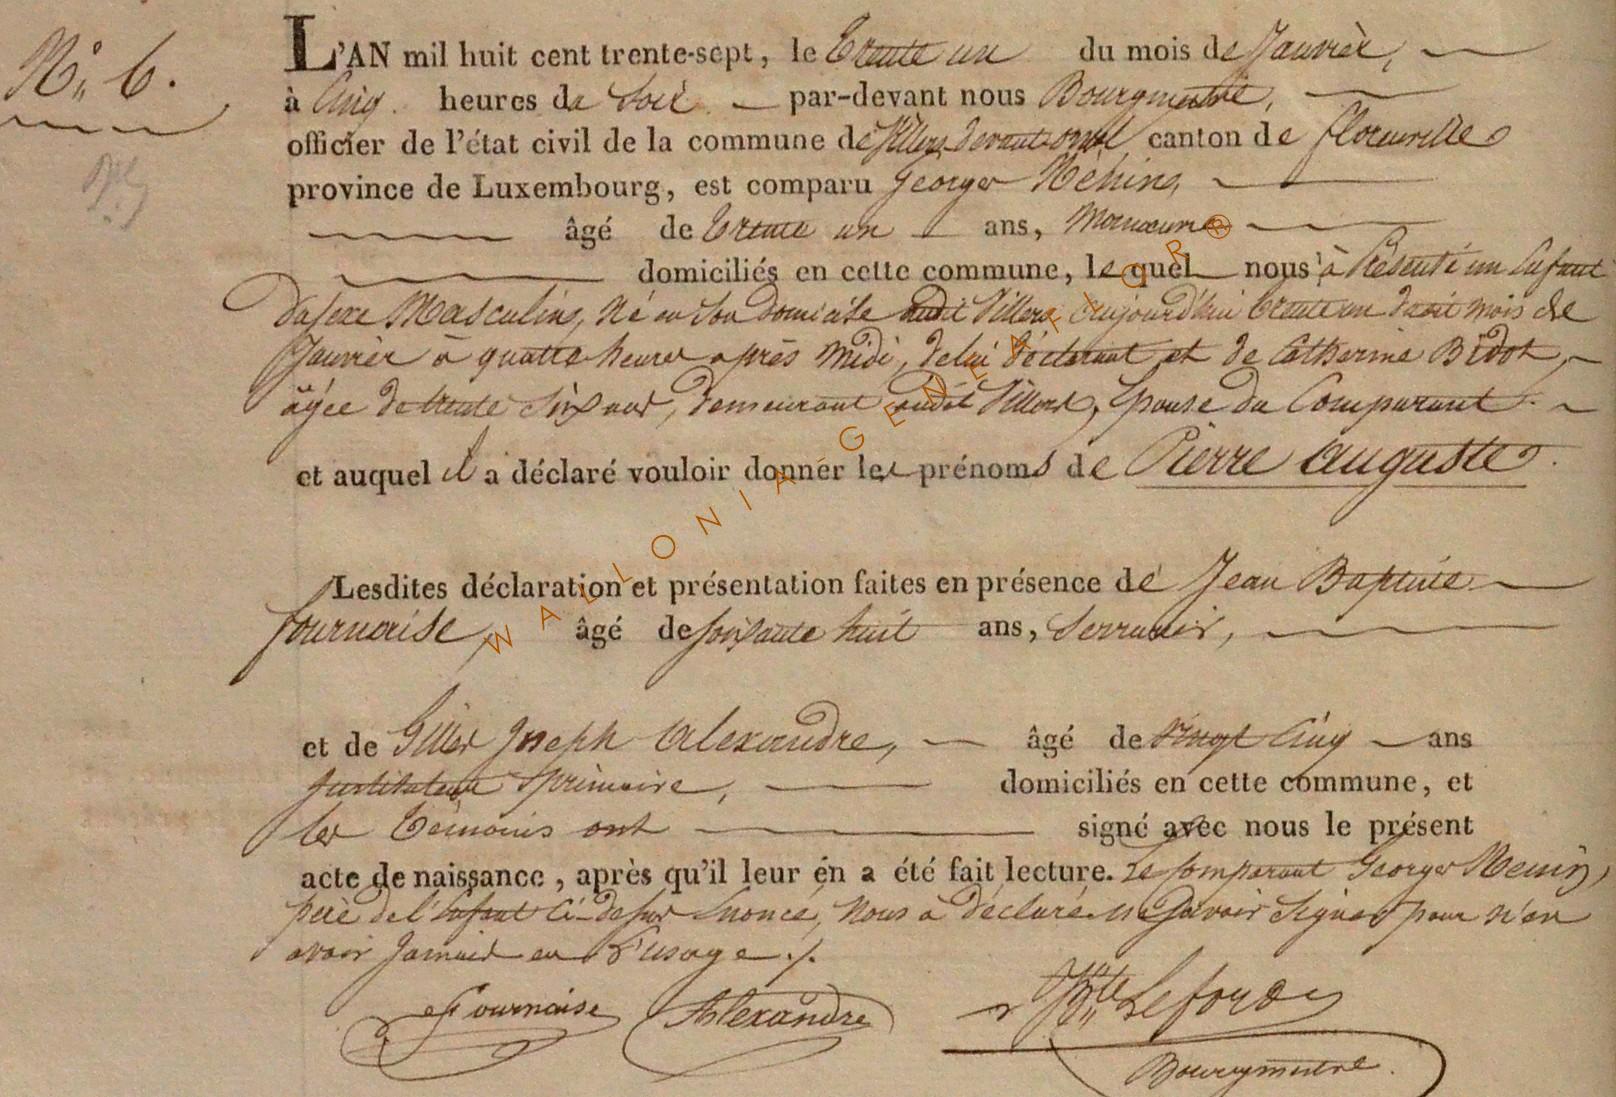 N° 6.
L'AN mil huit cent trente-sept, le trente un du mois de Janvier,
à Cinq heures du soir par-devant nous Bourgmestre,
officier de l'état civil de la commune de Villers devant orval canton de florenville
province de Luxembourg, est comparu Georges Néhins,
âgé de trente un ans, Manœuvre
domiciliés en cette commune, lequel nous à Présenté un Enfant
du sexe Masculins, Né en Son domicile audit Villers, aujourd'hui trente un dudit mois de
Janvier à quatre heures après midi, de lui déclarant et de Catherine Bidot,
âgée de trente Six ans, demeurant audit Villers, Epouse du Comparant.
et auquel il a déclaré vouloir donner les prénoms de Pierre auguste.
Lesdites déclaration et présentation faites en présence de Jean Baptiste
fournaise, âgé de soixante huit ans, Serrurier,
et de Gilles Joseph Alexandre, âgé de vingt Cinq ans
Instituteur primaire, domiciliés en cette commune, et
les témoins ont signé avec nous le présent
acte de naissance, après qu'il leur en a été fait lecture. Le Comparant Georges
père de l'Enfant Ci-dessus Enoncé, Nous à déclaré ne Savoir Signer pour n'en
avoir Jamais eu l'usage ./.
Fournaise Alexandre Lefort
Bourgmestre.
WALLONIA-GENEALOGR®